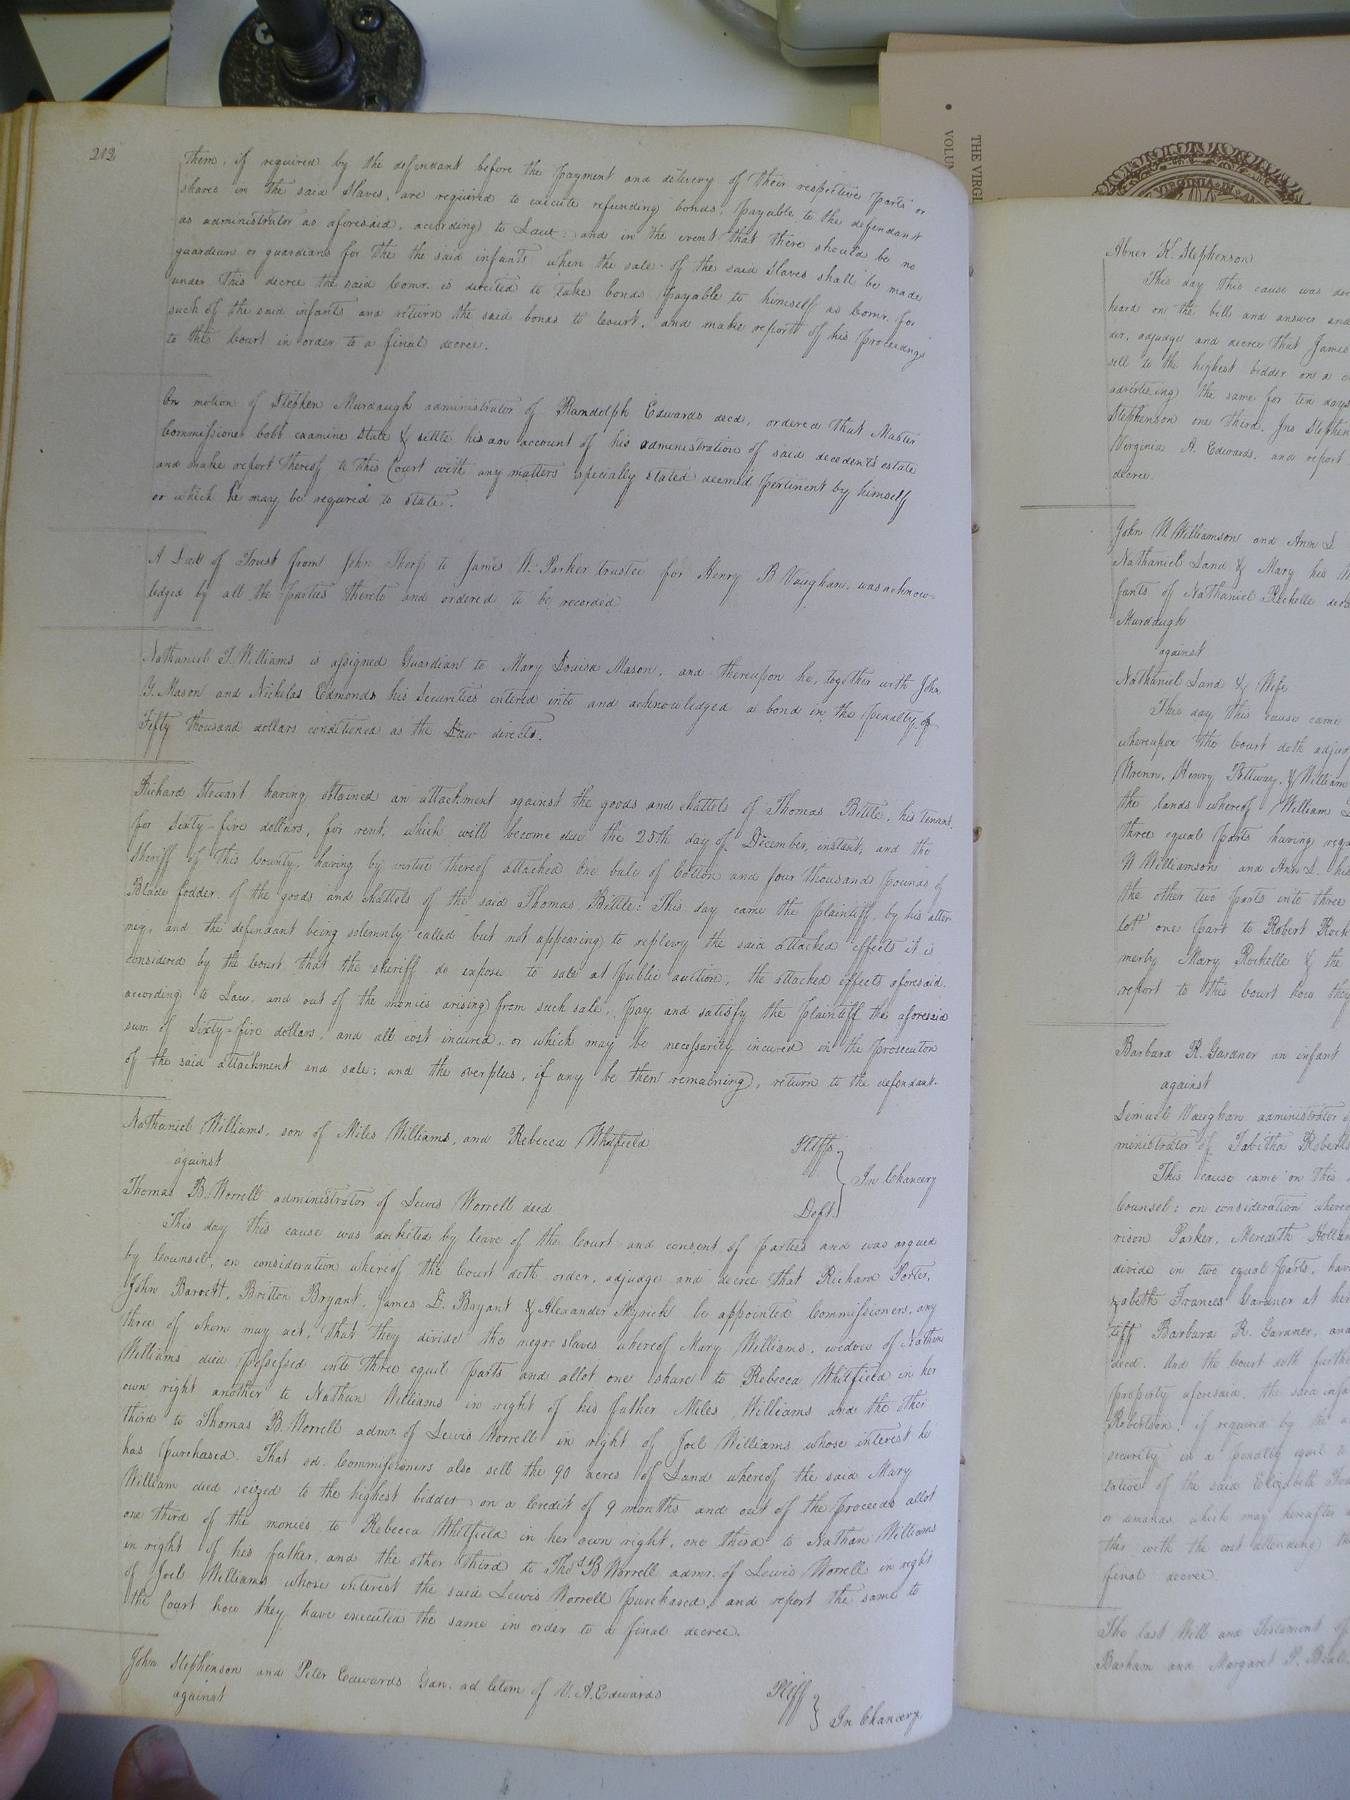 212
them, if required by the defendant before the payment and delivery of their respective parts or
shares in the said Slaves, are required to execute refunding bonds, payable to the defendant
as administrator as aforesaid, according to Law: and in the event that there should be no
guardian or guardians for the the said infants when the sale of the said Slaves shall be made
under this decree the said Comr. is directed to take bonds payable to himself as Comr. for
such of the said infants and return the said bonds to Court, and make report of his proceedings
to the Court in order to a final decree.
On motion of Stephen Murdaugh administrator of Randolph Edwards decd, ordered that Master
Commissioner Cobb examine state & settle his an account of his administration of said decedents estate
and make report thereof to this Court with any matters specially stated deemed pertinent by himself
or which he may be required to state.
A Deed of Trust from John Thorp to James W. Parker trustee for Henry B Vaughan, was acknow-
ledged by all the parties thereto and ordered to be recorded
Nathaniel T. Williams is assigned Guardian to Mary Louisa Mason, and thereupon he, together with John
Y. Mason and Nicholas Edmonds his Securities entered into and acknowledged a bond in the penalty of
Fifty thousand dollars conditioned as the Law directs.
Richard Stewart having obtained an attachment against the goods and chattels of Thomas Bittle, his tenant,
for Sixty-five dollars, for rent, which will become due the 25th day of December, instant, and the
Sheriff of this County, having by virtue thereof attached One bale of Cotton and four thousand pounds of
Blade fodder, of the goods and chattels of the said Thomas Bittle: This day came the plaintiff, by his attor-
ney, and the defendant being solemnly called but not appearing to replevy the said attached effects it is
considered by the Court that the sheriff do expose to sale at public auction, the attached effects aforesaid
according to Law, and out of the monies arising from such sale, pay and satisfy the plaintiff the aforesaid
sum of Sixty-five dollars, and all cost incured, or which may be necessarily incured in the prosecution
of the said attachment and sale; and the overplus, if any be then remaining, return to the defendant.
Nathaniel Williams, son of Miles Williams, and Rebecca Whitfield Pltffs
against In Chancery
Thomas B. Worrell administrator of Lewis Worrell decd Deft.
This day this cause was docketed by leave of the Court and consent of parties and was argued
by Counsel, on consideration whereof the Court doth order, adjudge and decree that Richard Porter,
John Barrett, Britton Bryant, James D. Bryant & Alexander Myrick be appointed Commissioners, any
three of whom may act, that they divide the negro slaves whereof Mary Williams, widow of Nathan
Williams died possessed into three equil parts and allot one share to Rebecca Whitfield in her
own right another to Nathan Williams in right of his father Miles Williams and the other
third to Thomas B. Worrell admr. of Lewis Worrell in right of Joel Williams whose interest he
has purchased. That sd. Commissioners also sell the 90 acres of Land whereof the said Mary
William died seized to the highest bidder on a Credit of 9 months and out of the proceeds allot
one third of the monies to Rebecca Whitfield in her own right, one third to Nathan Williams
in right of his father, and the other third to Thos B Worrell admr. of Lewis Worrell in right
of Joel Williams whose interest the said Lewis Worrell purchased, and report the same to
the Court how they have executed the same in order to a final decree.
John Stephenson and Peter Edwards Gan. ad litem of V. A. Edwards Pltff
against In Chancery
THE VIRGI
VOLUM
VIRGINIA
Abner K. Stephenson
This day this cause was doc
heard on the bill and answer and
der, adjudge and decree that James
sell to the highest bidder on a c
advertising the same for ten days
Stephenson one third, Jno Stephen
Virginia A. Edwards, and report
decree.
John W Williamson and Ann L
Nathaniel Land & Mary his
fants of Nathaniel Rochelle decd
Murdaugh
against
Nathaniel Land & Wife
This day this cause came
whereupon the Court doth adjud
Henry Pettway, & William
the lands whereof William
three equal parts having rega
W Williamson and Ann L. his
the other two parts into three
lot one part to Robert Roch
merly Mary Rochelle & the
report to this Court how they
Barbara R. Gardner an infant
against
Lemuel Vaughan administrator
ministrator of Tabitha Roberts
This cause came on this
Counsel: on consideration where
rison Parker, Meredith Hollan
divide in two equal parts, hav
zabeth Frances Gardner at her
tiff Barbara R. Gardner, and
decd. And the Court doth furthe
property aforesaid, the said infa
Robertson, if required by the
security in a penalty equal
tative of the said Elizabeth Fra
or demands which may hereafter
ther with the cost attending the
final decree.
The last Will and Testament of
Barham and Margaret P.